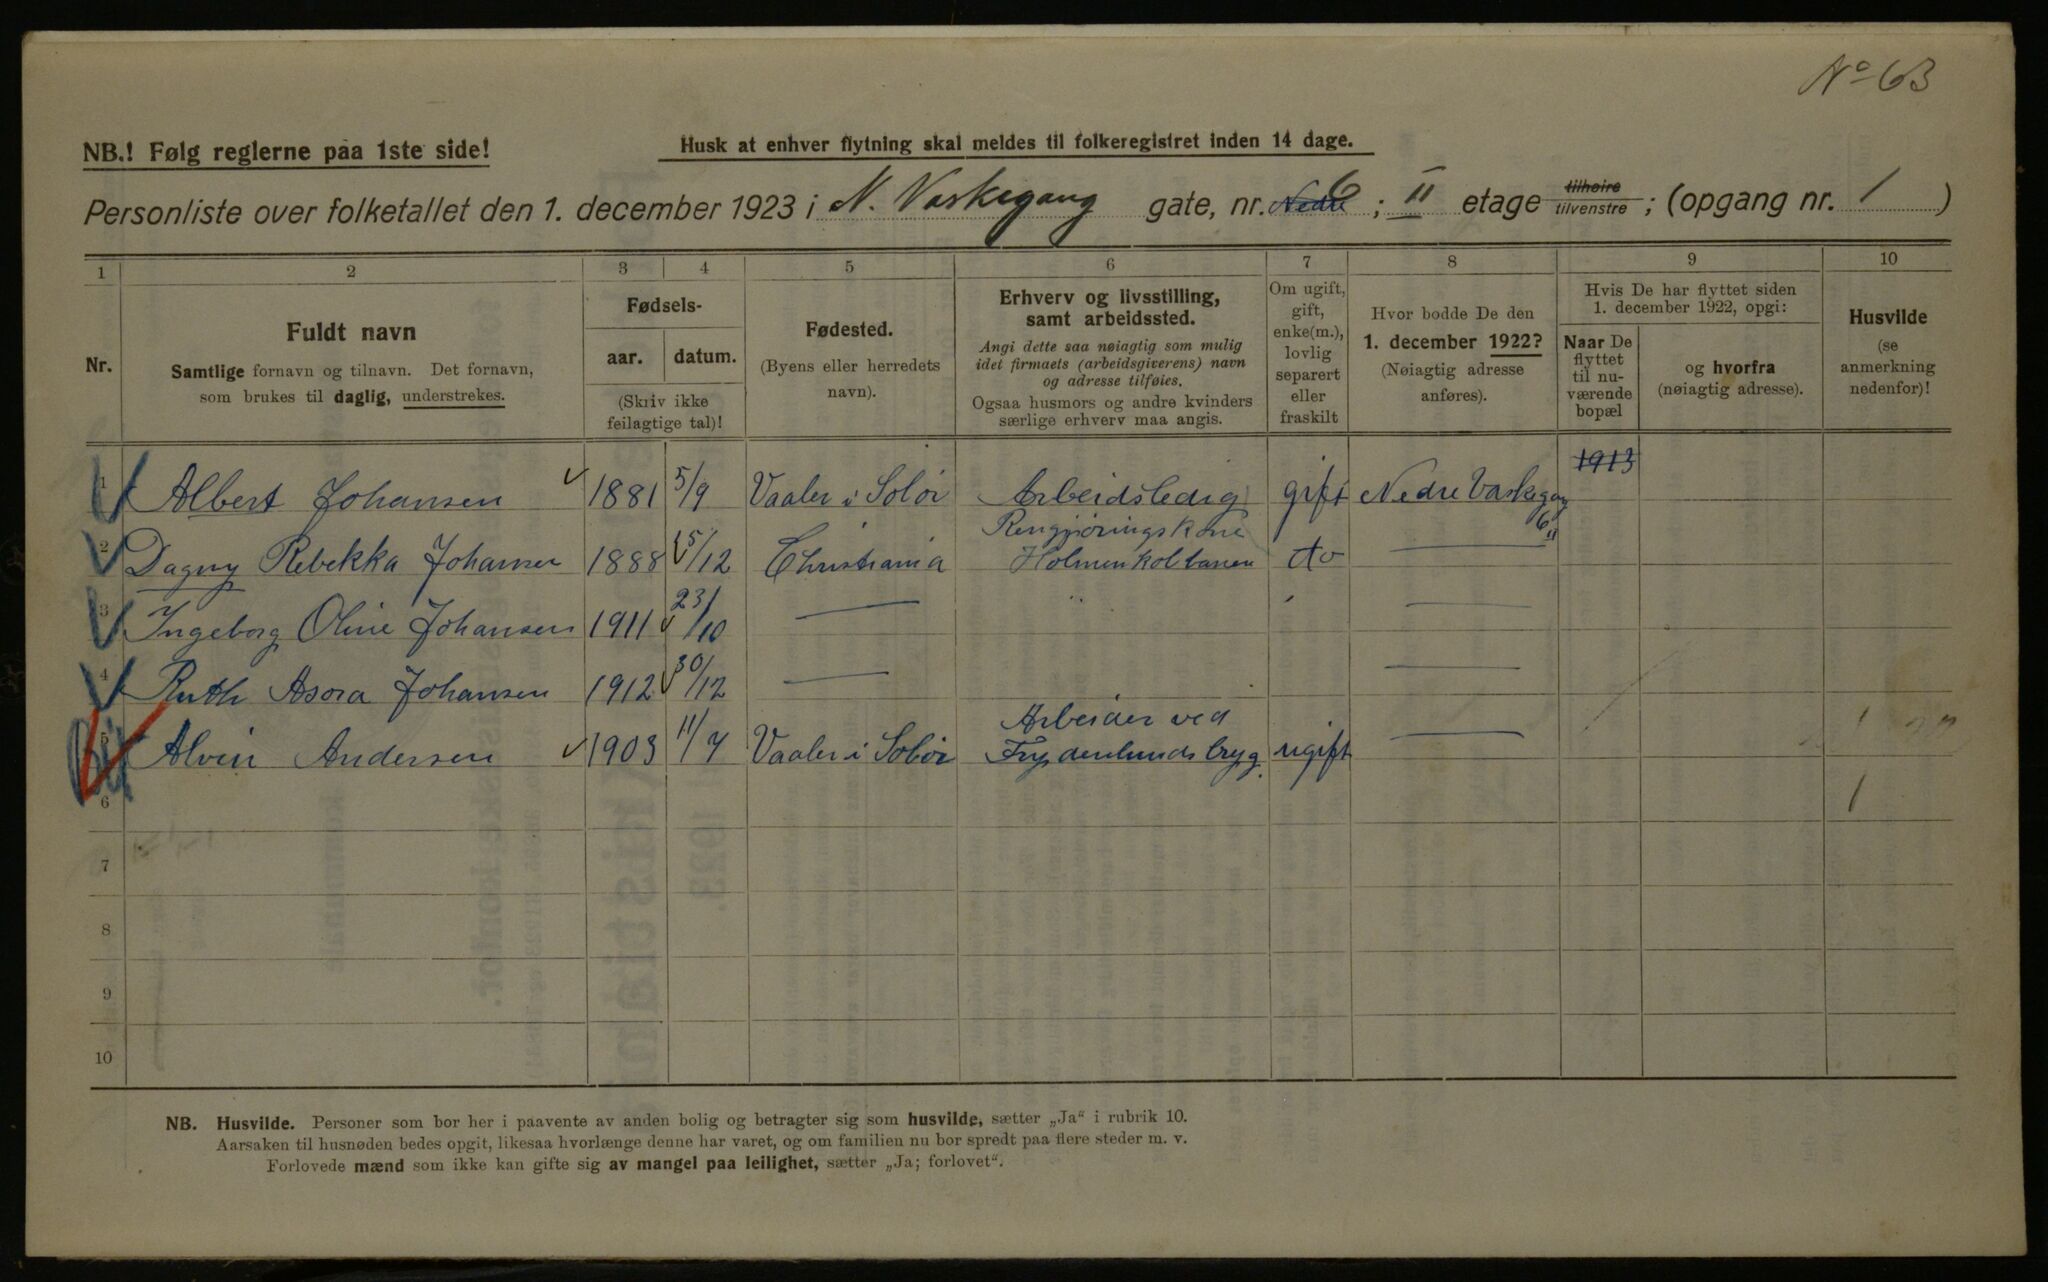 No 63
NB.! Følg reglerne paa 1ste side!
Husk at enhver flytning skal meldes til folkeregistret inden 14 dage.
Personliste over folketallet den 1. december 1923 i N. Vaskegang gate, nr. Nedre 6 ; II etage tilhøire tilvenstre ; (opgang nr. 1 )
1 2 3 4 5 6 7 8 9 10
Nr.
Fuldt navn
Samtlige fornavn og tilnavn. Det fornavn,
som brukes til daglig, understrekes.
Fødsels-
aar. datum.
(Skriv ikke
feilagtige tal)!
Fødested.
(Byens eller herredets
navn).
Erhverv og livsstilling,
samt arbeidssted.
Angi dette saa nøiagtig som mulig
idet firmaets (arbeidsgiverens) navn
og adresse tilføies.
Ogsaa husmors og andre kvinders
særlige erhverv maa angis.
Om ugift,
gift,
enke(m.),
lovlig
separert
eller
fraskilt
Hvor bodde De den
1. december 1922?
(Nøiagtig adresse
anføres).
Hvis De har flyttet siden
1. december 1922, opgi:
Naar De
flyttet
til nu-
værende
bopæl
og hvorfra
(nøiagtig adresse).
Husvilde
(se
anmerkning
nedenfor)!
1 Albert Johansen 1881 5/9 Vaaler i Solør Arbeidsledig gift Nedre Vaskegang 6 II 1913
2 Dagny Rebekka Johansen 1888 15/12 Christiania Rengjøringskone Holmenkolbanen do —
3 Ingeborg Oline Johansen 1911 23/10 — " —
4 Ruth Asora Johansen 1912 30/12 — —
5 Alvin Andersen 1903 11/7 Vaaler i Solør Arbeider ved Frydenlunds bryg. ugift — 1
6 1
7
8
9
10
NB. Husvilde. Personer som bor her i paavente av anden bolig og betragter sig som husvilde, sætter „Ja“ i rubrik 10.
Aarsaken til husnøden bedes opgit, likesaa hvorlænge denne har varet, og om familien nu bor spredt paa flere steder m. v.
Forlovede mænd som ikke kan gifte sig av mangel paa leilighet, sætter „Ja; forlovet“.